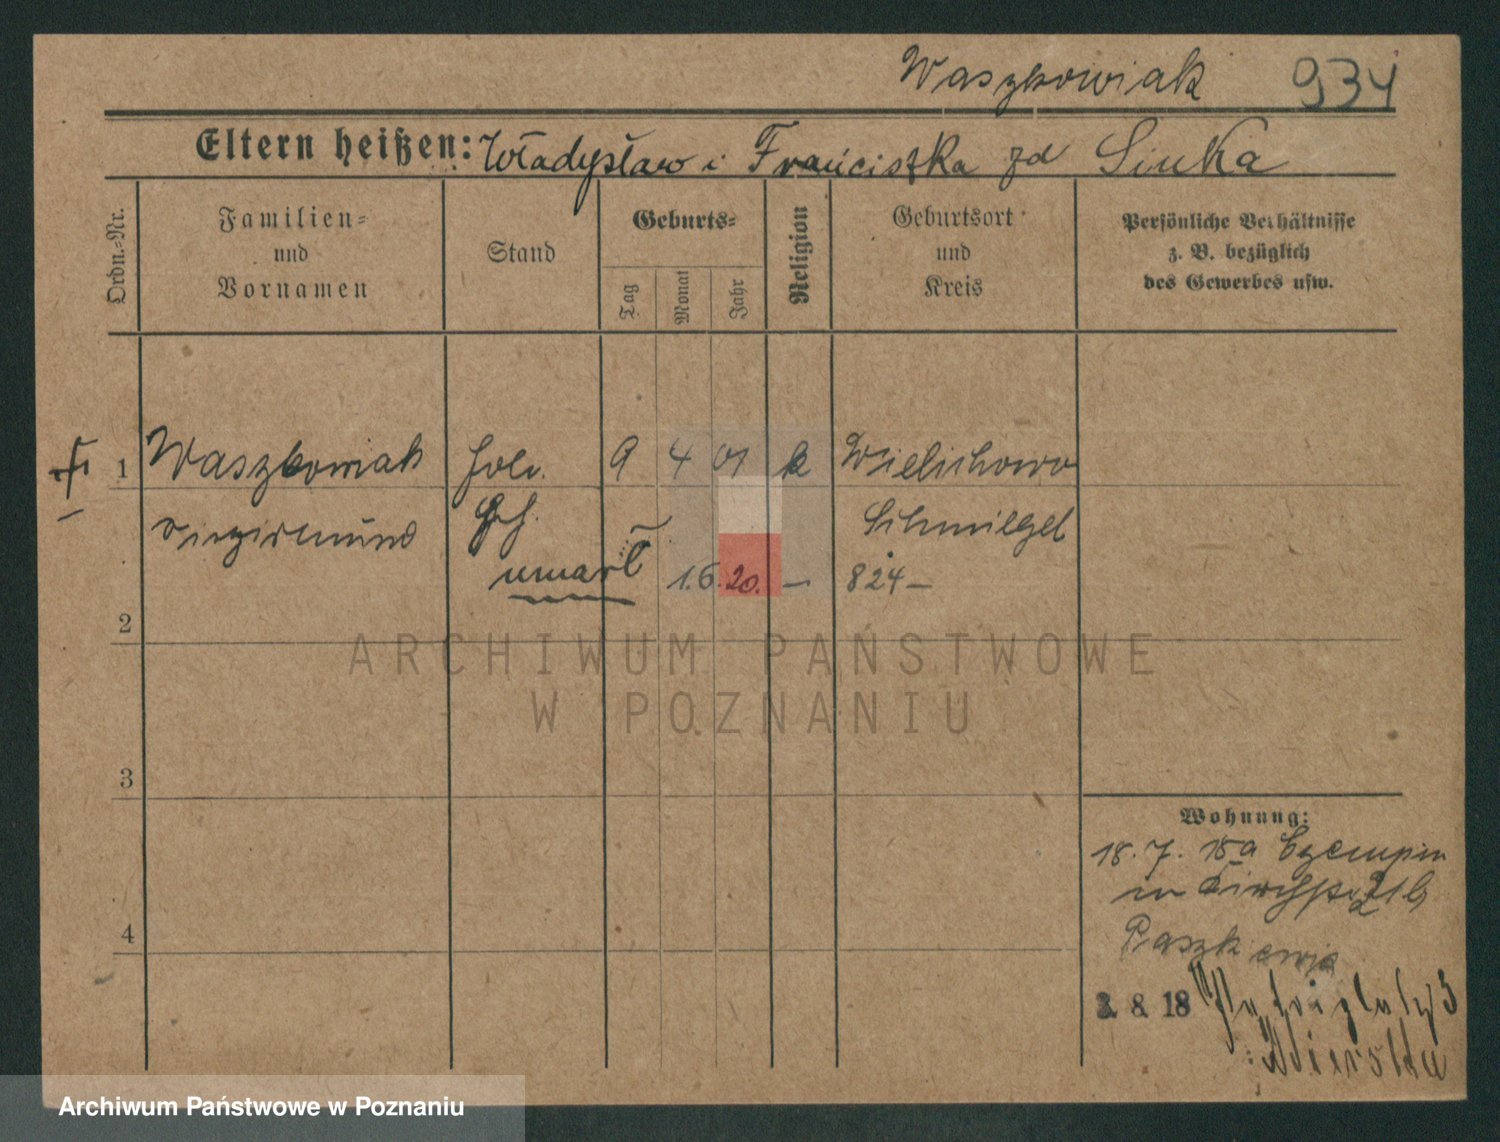 Waszkowiak 934
Eltern heißen: Władysław i Franciszka zd Sinka
Ordn.-Nr.
Familien-
und
Vornamen
Stand
Geburts-
Tag
Monat
Jahr
Religion
Geburtsort
und
Kreis
Persönliche Verhältnisse
z. B. bezüglich
des Gewerbes usw.
1 Waszkowiak 9 4 01 k Wielichowo
Schmiegel
umarł 1.6.20. — 824 —
2
ARCHIWUM PAŃSTWOWE
W POZNANIU
3
Wohnung:
18. 7. 18 a Czempin
4
3. 8. 18
Archiwum Państwowe w Poznaniu